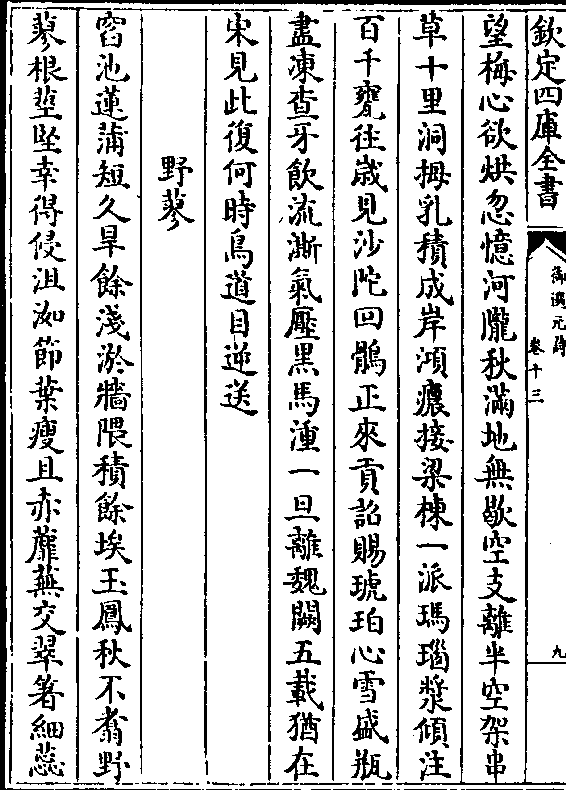 欽定四庫全書
御選元詩
卷十三
九
望梅心欲烘忽憶河隴秋滿地無歇空支離半空架串
草十里洞拇乳積成岸澒瀼接梁棟一派瑪瑙漿傾注
百千甕往歲見沙陀回鶻正來貢詔賜琥珀心雪盛瓶
盡凍查牙飲流澌氣壓黑馬湩一旦離魏闕五載猶在
宋見此復何時鳥道目逆送
野蓼
窅池蓮蒲短久旱餘淺淤牆隈積餘埃玉鳳秋不翥野
蓼根莖堅幸得侵沮洳節葉瘦且赤蘼蕪交翠箸細蕊